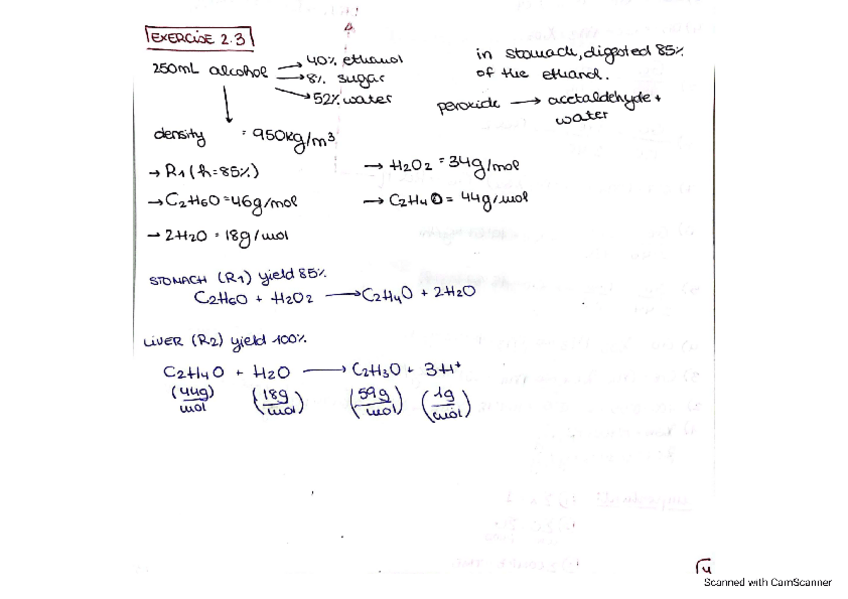 EXERCISE 2.3
250mL alcohol → 40% ethanol
→ 8% sugar
→ 52% water
in stomach, digested 85%
of the ethanol.
peroxide → acetaldehyde +
water
density = 950kg/m³
→ R1 (h=85%)
→ H2O2 = 34g/mol
→ C2H6O = 46g/mol
→ C2H4O = 44g/mol
→ 2H2O = 18g/mol
STOMACH (R1) yield 85%
C2H6O + H2O2 → C2H4O + 2H2O
LIVER (R2) yield 100%
C2H4O + H2O → C2H3O + 3H⁺
(44g/mol) (18g/mol) (59g/mol) (1g/mol)
Scanned with CamScanner